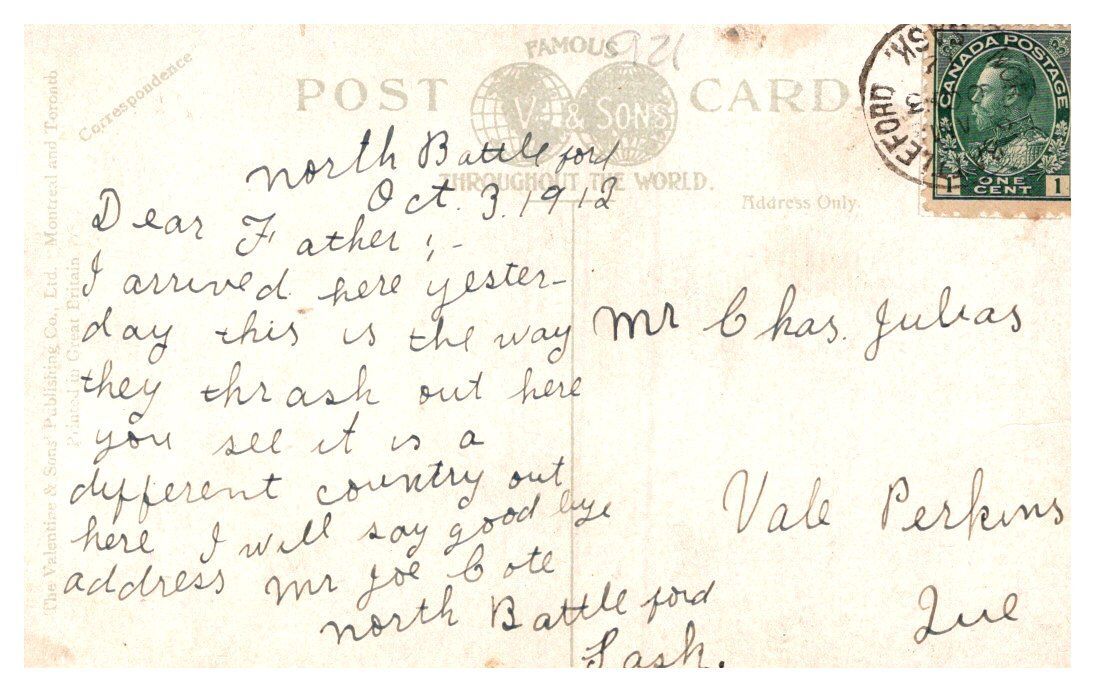 FAMOUS
921
POST CARD
V. & SONS
THROUGHOUT THE WORLD.
Correspondence
Address Only.
CANADA POSTAGE
1 ONE CENT 1
LEFORD SASK.
The Valentine & Sons' Publishing Co., Ltd. Montreal and Toronto
Printed in Great Britain
North Battleford
Oct. 3. 1912
Dear Father ;-
I arrived here yester-
day this is the way
they thrash out here
you see it is a
different country out
here I will say good bye
address Mr Joe Cote
North Battleford
Sask.
Mr Chas. Julias
Vale Perkins
Que